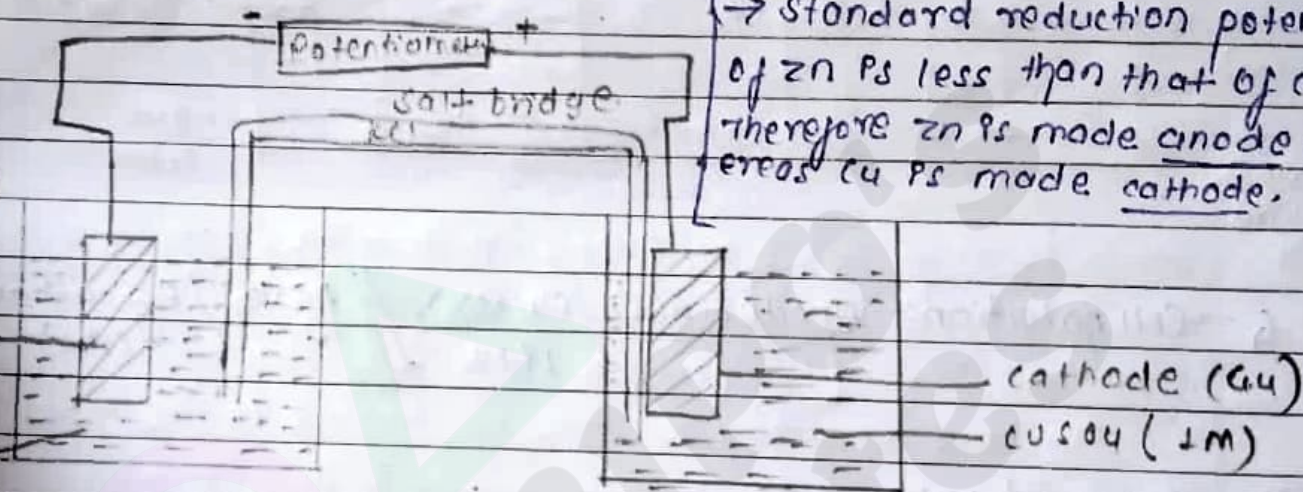 - Potentiometer +
salt bridge
KCl
→ standard reduction poten
of zn Ps less than that of c
Therefore zn Ps made anode
ereas cu Ps made cathode.
cathode (Cu)
CUSO4 (1M)